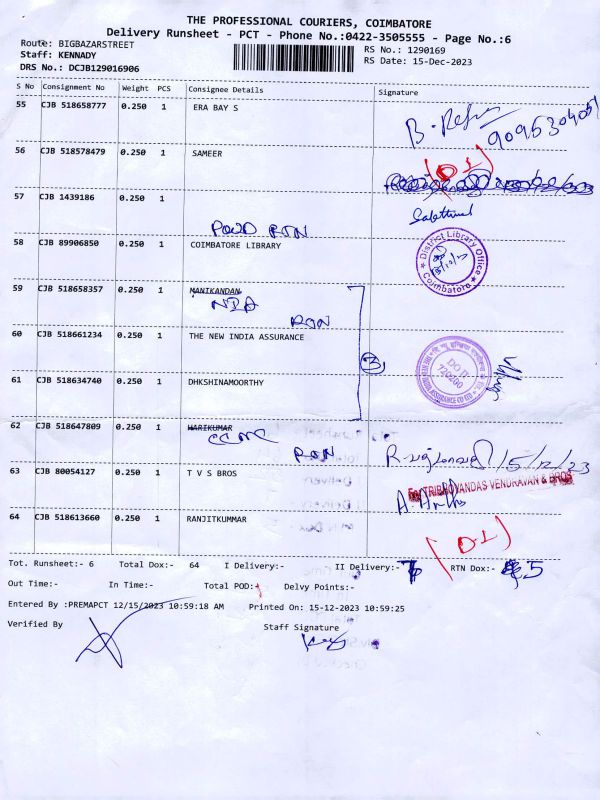 THE PROFESSIONAL COURIERS, COIMBATORE
Delivery Runsheet - PCT - Phone No.:0422-3505555 - Page No.:6
Route: BIGBAZARSTREET
RS No.: 1290169
Staff: KENNADY
RS Date: 15-Dec-2023
DRS No.: DCJB129016906
S No Consignment No Weight PCS Consignee Details Signature
55 CJB 518658777 0.250 1 ERA BAY S
56 CJB 518578479 0.250 1 SAMEER
57 CJB 1439186 0.250 1
RTN
58 CJB 89906850 0.250 1 COIMBATORE LIBRARY
District Library Office
Coimbatore
59 CJB 518658357 0.250 1 MANIKANDAN
NIA
RTN
60 CJB 518661234 0.250 1 THE NEW INDIA ASSURANCE
3
720200
61 CJB 518634740 0.250 1 DHKSHINAMOORTHY
62 CJB 518647809 0.250 1 HARIKUMAR
RTN
15/12/23
63 CJB 80054127 0.250 1 T V S BROS
For TRIBHOVANDAS VENDRAVAN & BROS
64 CJB 518613660 0.250 1 RANJITKUMMAR
Tot. Runsheet:- 6 Total Dox:- 64 I Delivery:- II Delivery:- RTN Dox:- 5
Out Time:- In Time:- Total POD:- Delvy Points:-
Entered By :PREMAPCT 12/15/2023 10:59:18 AM Printed On: 15-12-2023 10:59:25
Verified By Staff Signature